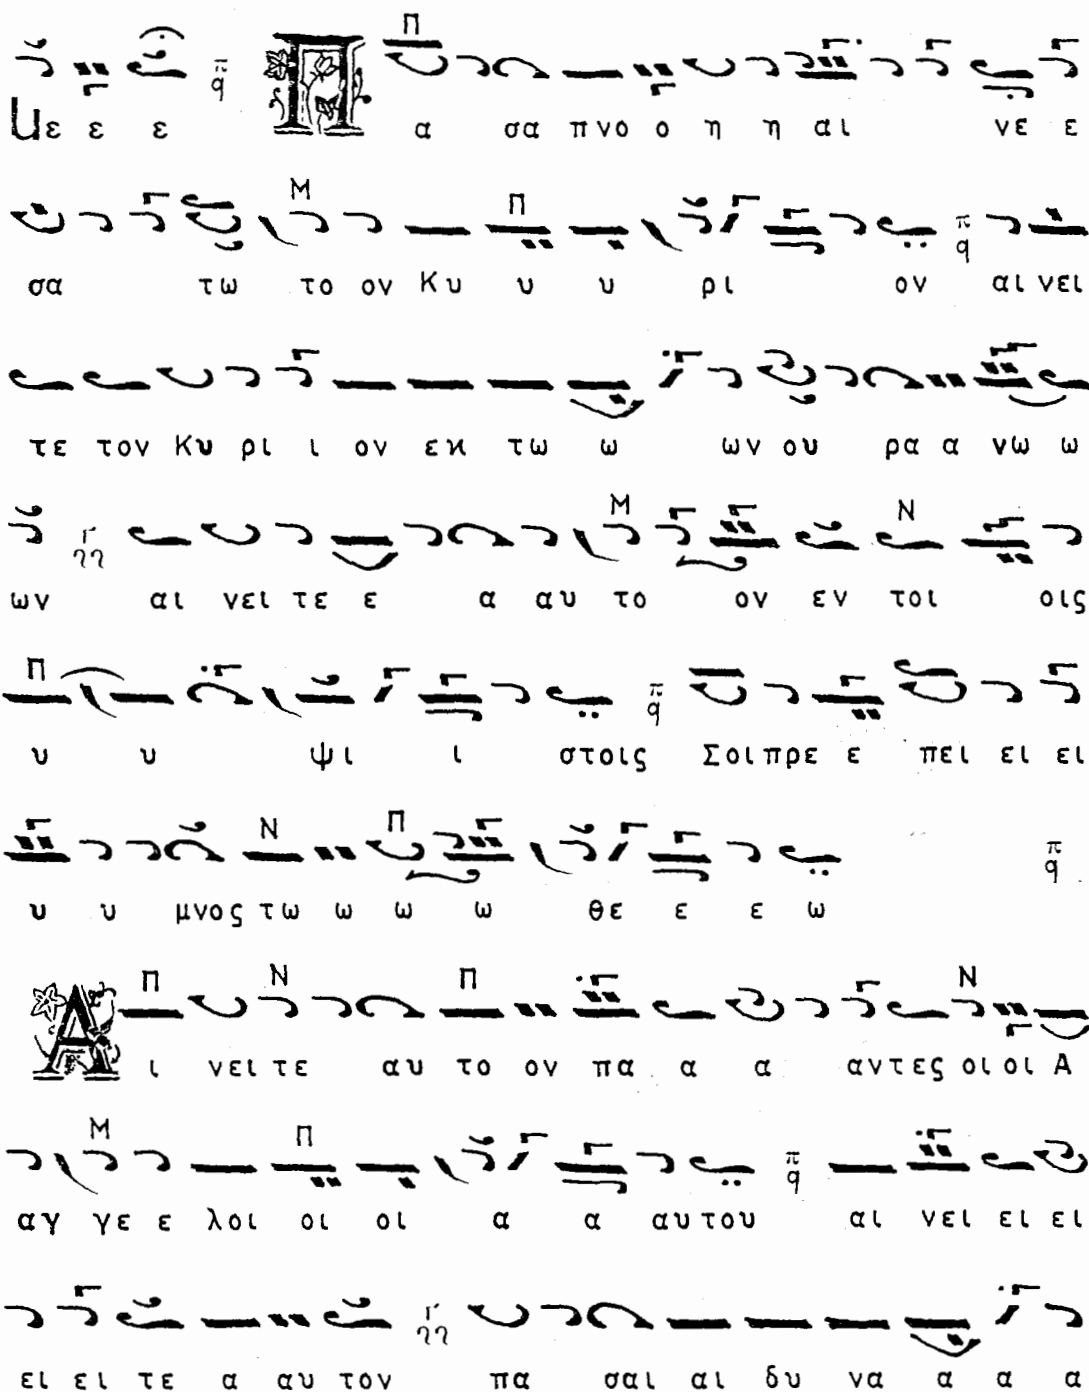 Π
π q
Νε ε ε Π α σα πνο ο η η αι νε ε
Μ Π
π q
σα τω το ον Κυ υ υ ρι ον αι νει
τε τον Κυ ρι ι ον εκ τω ω ων ου ρα α νω ω
Μ Ν
ων αι νει τε ε α αυ το ον εν τοι οις
Π
π q
υ υ ψι ι στοις Σοι πρε ε πει ει ει
Ν Π
π q
υ υ μνος τω ω ω ω θε ε ε ω
Π Ν Π Ν
Α ι νει τε αυ το ον πα α α αντες οι οι Α
Μ Π
π q
αγ γε ε λοι οι οι α α αυ του αι νει ει ει
ει ει τε α αυ τον πα σαι αι δυ να α α α